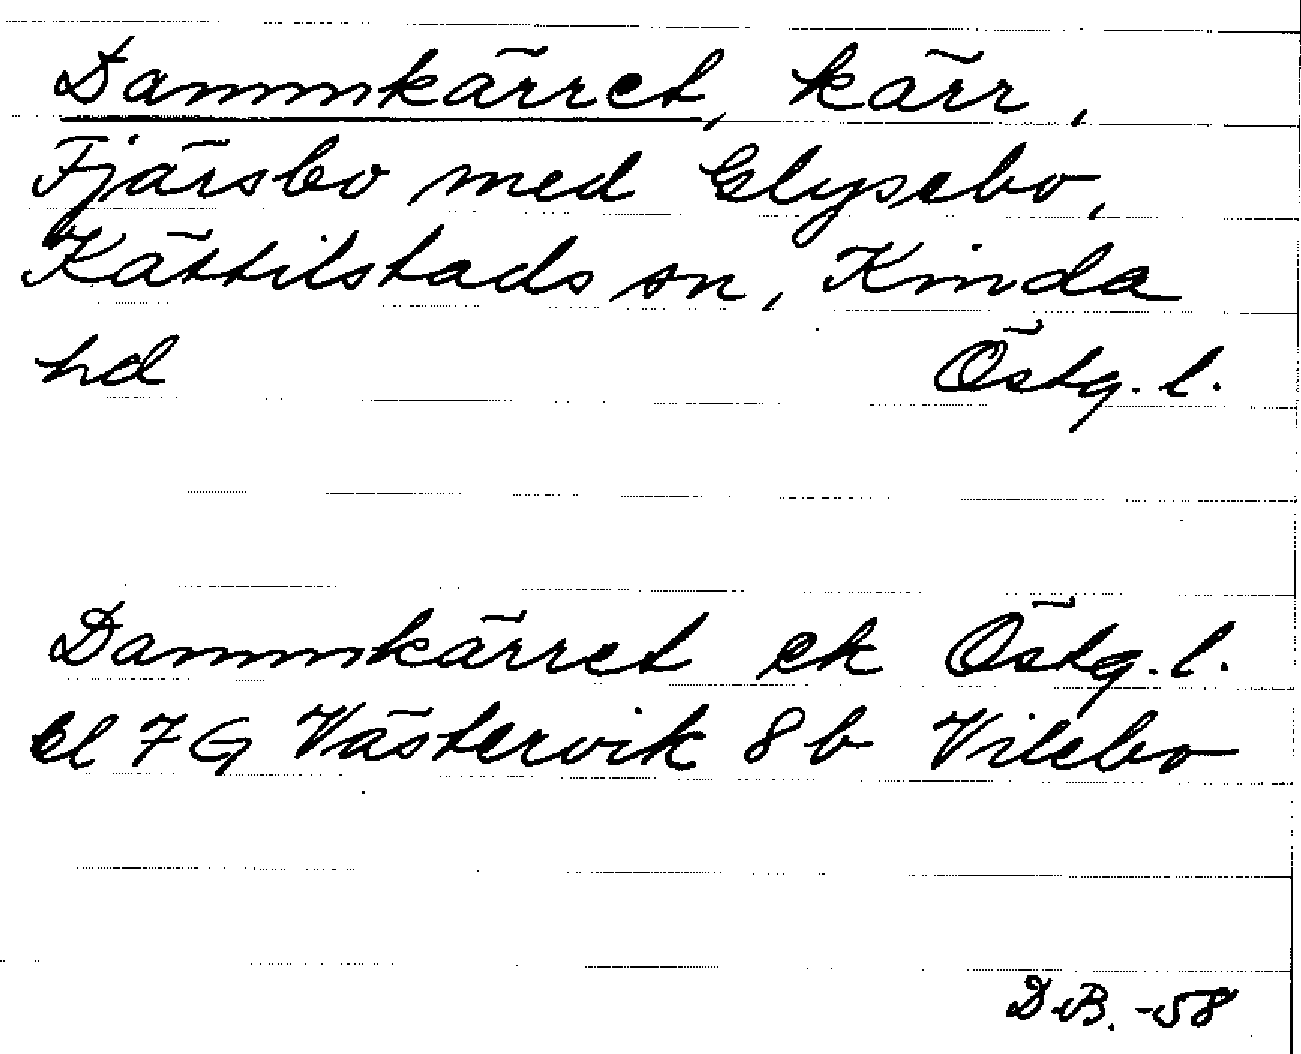 Dammkärret, kärr,
Fjärsbo med Glysebo,
Kättilstads sn, Kinda
hd Östg. l.
Dammkärret ek Östg. l.
bl 7 G Västervik 8 b Vilebo
D.B. -58